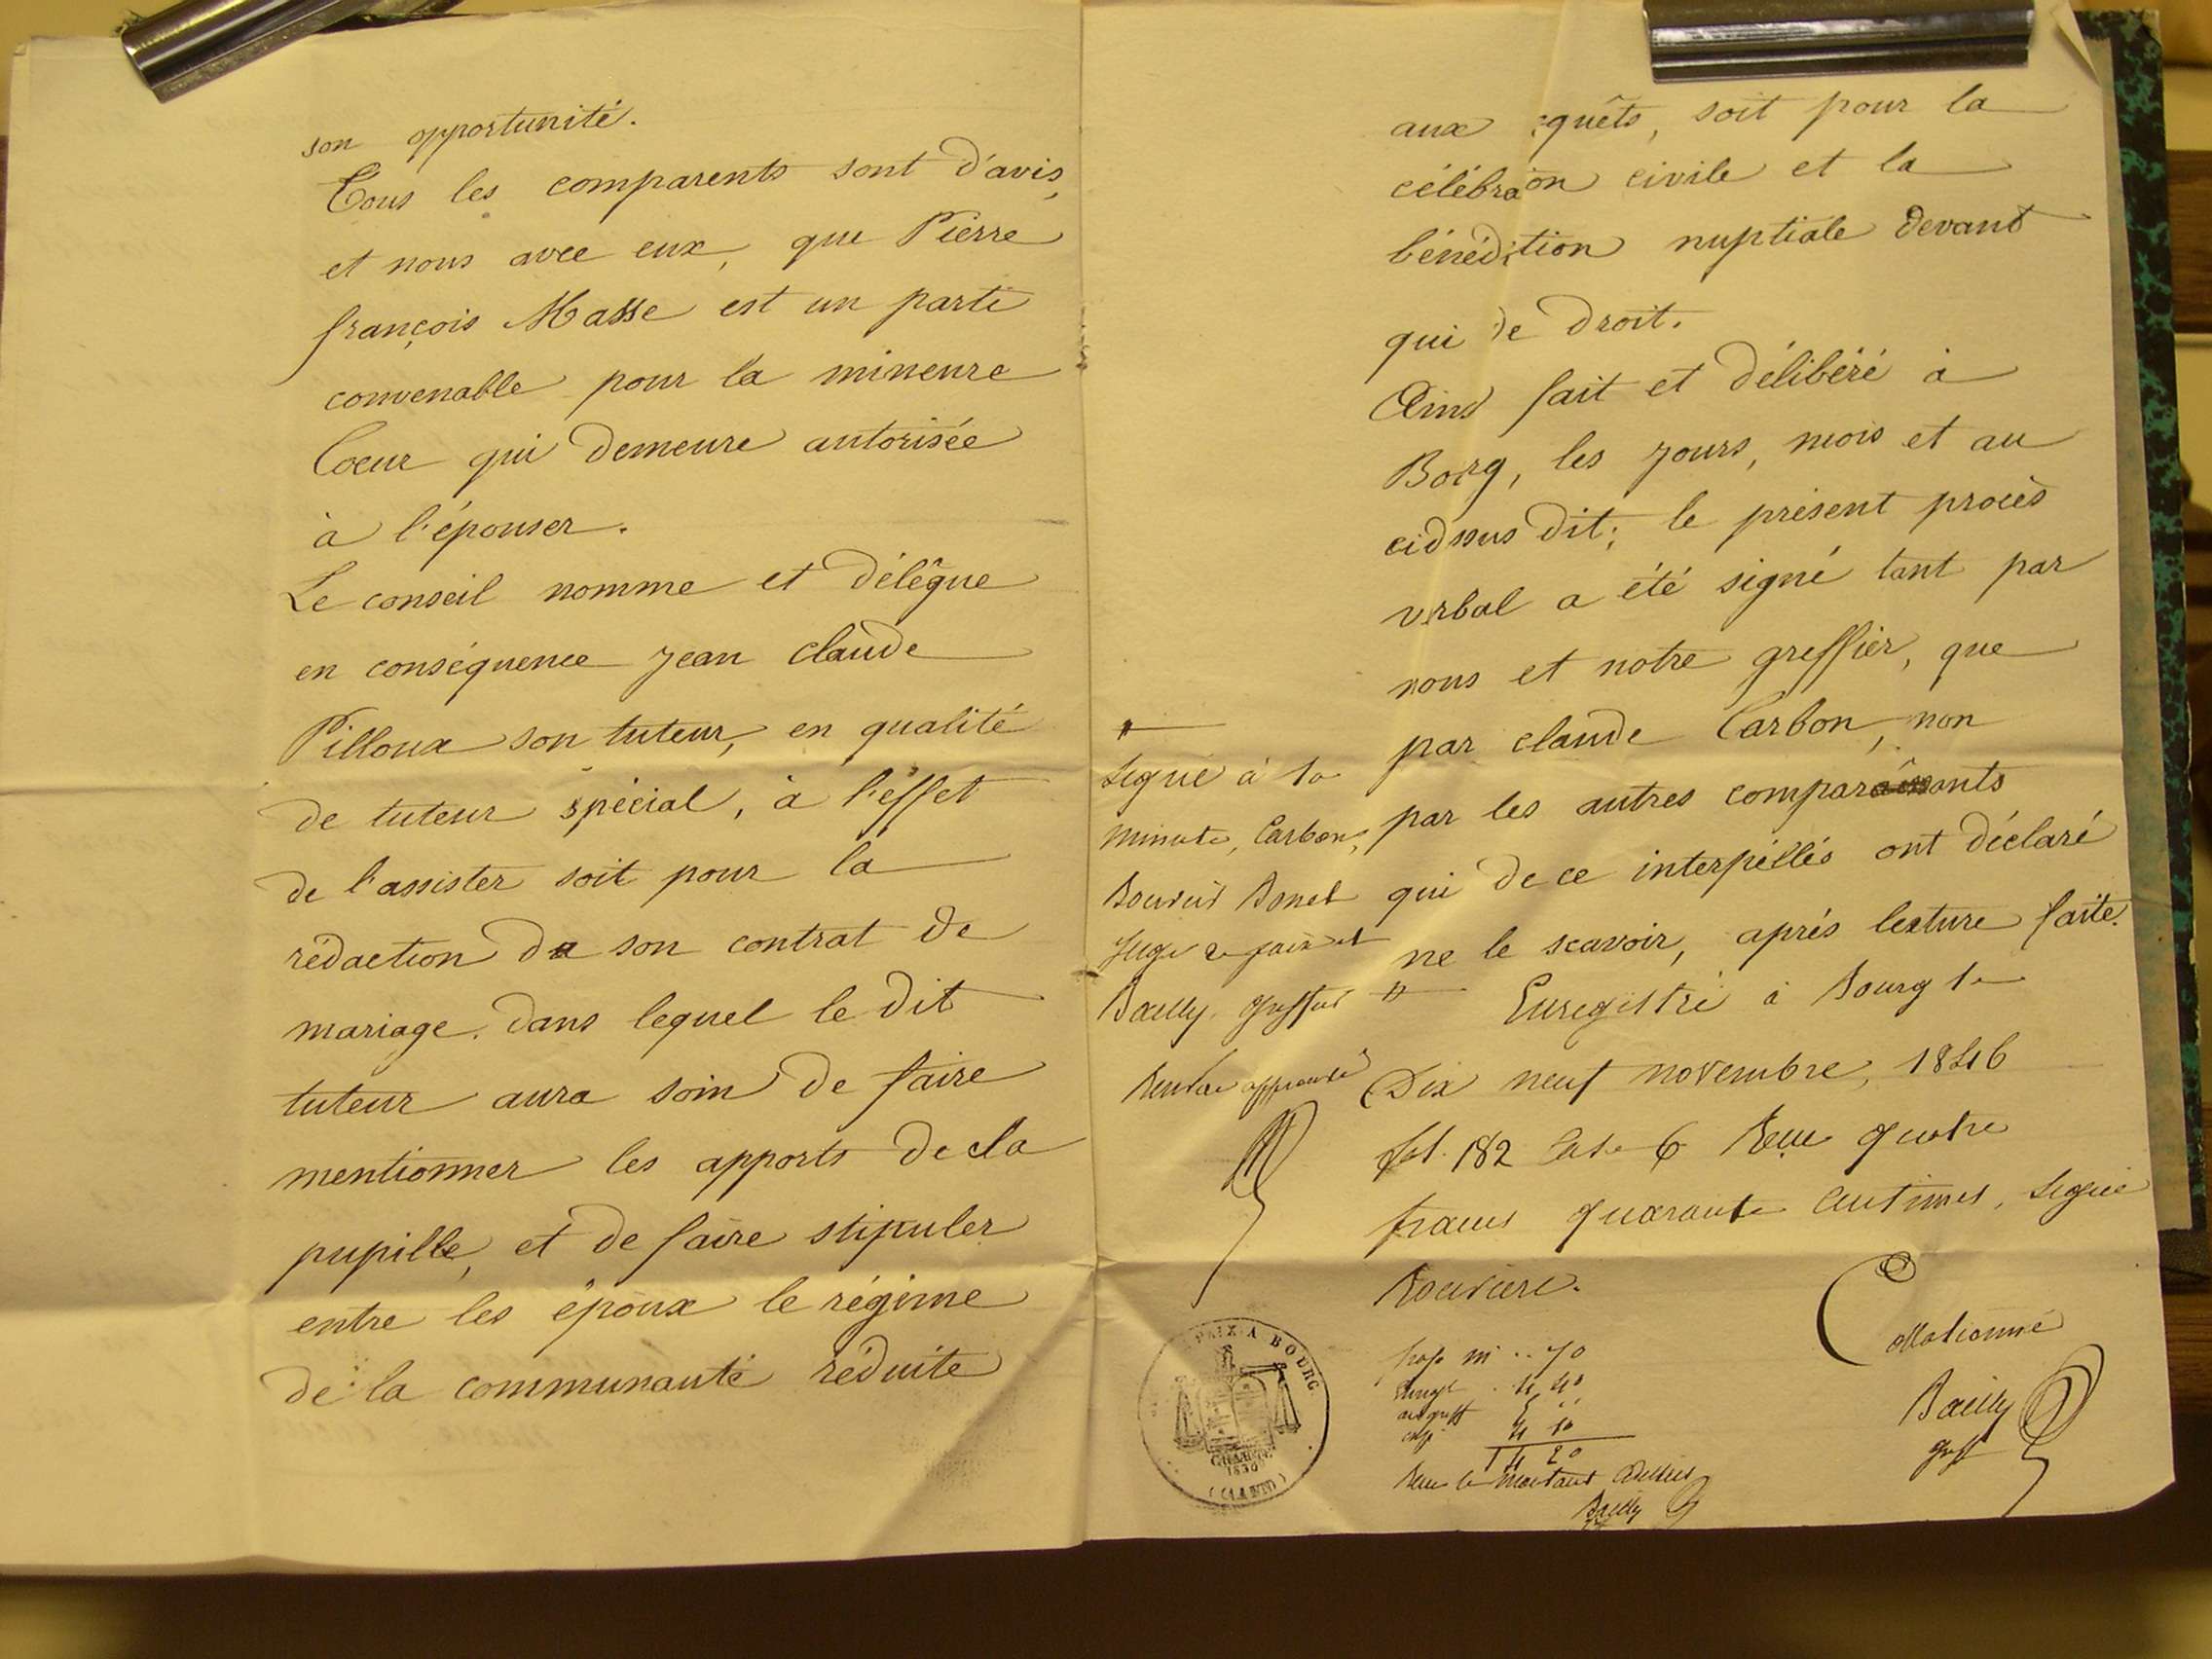 son opportunité.
Tous les comparents sont d'avis,
et nous avec eux, que Pierre
françois Masse est un parti
convenable pour la mineure
Coeur qui demeure autorisée
à l'épouser.
Le conseil nomme et délègue
en conséquence jean claude
Pilloux son tuteur, en qualité
de tuteur spécial, à l'effet
de l'assister soit pour la
rédaction de son contrat de
mariage. dans lequel le dit
tuteur aura soin de faire
mentionner les apports de la
pupille, et de faire stipuler
entre les époux le régime
de la communauté réduite
aux quêts, soit pour la
célébraon civile et la
bénédition nuptiale devant
qui de droit.
Ainsi fait et délibéré à
Borg, les jours, mois et au
cidssus dit; le présent procès
verbal a été signé tant par
nous et notre greffier, que
par claude Carbon, non
par les autres comparants
qui de ce interpéllés ont déclaré
ne le scavoir, après lecture faite.
signé à la
minute, Carbon,
Bouvier Bonet
juge de paix et
Bailly greffier
Renvoi approuvé
Enregistré à Bourg le
Dix neuf novembre, 1846
fol. 182 Case 6 Reçu quatre
francs quarante centimes, signé
Rouvière.
PAIX A BOURG
CHARTE
1830
(L'AIN)
70
4 40
4 10
14 20
Reçu le montant Dessus
Bailly
Collationné
Bailly
greff